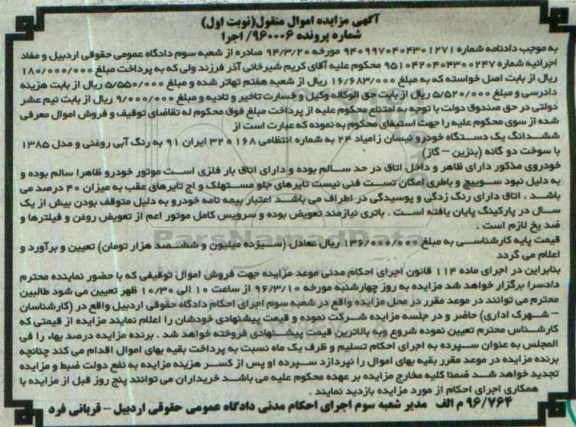 آگهی مزایده اموال منقول(نوبت اول)
شماره پرونده ۹۶۰۰۰۶/اجرا
به موجب دادنامه شماره ۹۴۰۹۹۷۰۴۰۴۳۰۱۲۷۱ مورخه ۹۴/۳/۲۰ صادره از شعبه سوم دادگاه عمومی حقوقی اردبیل و مفاد
اجرائیه شماره ۹۵۱۰۴۲۰۴۰۴۳۰۰۲۴۷ محکوم علیه آقای کریم شیرخانی آذر فرزند ولی که به پرداخت مبلغ ۱۸۰/۰۰۰/۰۰۰
ریال از بابت اصل خواسته که به مبلغ ۱۶/۶۸۳/۰۰۰ ریال از شعبه هفتم تهاتر شده و مبلغ ۵/۵۵۰/۰۰۰ ریال از بابت هزینه
دادرسی و مبلغ ۵/۵۲۰/۰۰۰ ریال از بابت حق الوکاله وکیل و خسارت تاخیر و تادیه و مبلغ ۹/۰۰۰/۰۰۰ ریال از بابت نیم عشر
دولتی در حق صندوق دولت با توجه به امتناع محکوم علیه از پرداخت مبلغ فوق محکوم له تقاضای توقیف و فروش اموال معرفی
شده از سوی محکوم علیه را جهت استیفای محکوم به نموده که عبارت است از
ششدانگ یک دستگاه خودرو نیسان زامیاد ۲۴ به شماره انتظامی ۱۶۸ ۳۲۰ ایران ۹۱ به رنگ آبی روغنی و مدل ۱۳۸۵
با سوخت دو گانه (بنزین – گاز)
خودروی مذکور دارای ظاهر و داخل اتاق در حد سالم بوده و دارای اتاق بار فلزی است موتور خودرو ظاهرا سالم بوده و
به دلیل نبود سوییچ و باطری امکان تست فنی نیست تایرهای جلو مستهلک و اج تایرهای عقب به میزان ۴۰ درصد می
باشد . اتاق دارای رنگ زدگی و پوسیدگی در اطراف می باشد اعتبار بیمه نامه خودرو به دلیل متوقف بودن بیش از یک
سال در پارکینگ پایان یافته است . باتری نیازمند تعویض بوده و سرویس کامل موتور اعم از تعویض روغن و فیلترها و
ضد یخ لازم است .
قیمت پایه کارشناسی به مبلغ ۱۳۶/۰۰۰/۰۰۰ ریال معادل (سیزده میلیون و ششصد هزار تومان) تعیین و برآورد و
اعلام می گردد
بنابراین در اجرای ماده ۱۱۴ قانون اجرای احکام مدنی موعد مزایده جهت فروش اموال توقیفی که با حضور نماینده محترم
دادسرا برگزار خواهد شد مزایده به روز چهارشنبه مورخه ۹۶/۳/۱۰ از ساعت ۱۰ الی ۱۰/۳۰ ظهر تعیین می شود طالبین
محترم می توانند در موعد مقرر در محل مزایده واقع در شعبه سوم اجرای احکام دادگاه حقوقی اردبیل واقع در (کارشناسان
– شهرک اداری) حاضر و در جلسه مزایده شرکت نموده و قیمت پیشنهادی خودشان را اعلام نمایند مزایده از قیمتی که
کارشناس محترم تعیین نموده شروع و به بالاترین قیمت پیشنهادی فروخته خواهد شد . برنده مزایده درصد بهاء را فی
المجلس به عنوان سپرده به اجرای احکام تسلیم و ظرف یک ماه نسبت به پرداخت بقیه بهای اموال اقدام می کند چنانچه
برنده مزایده در موعد مقرر بقیه بهای اموال را نپردازد سپرده او پس از کسر هزینه مزایده به نفع دولت ضبط و مزایده
تجدید خواهد شد ضمنا کلیه مخارج مزایده بر عهده محکوم علیه می باشد خریداران می توانند پنج روز قبل از مزایده با
همکاری اجرای احکام از مورد مزایده بازدید نمایند .
۹۶/۷۶۴ م الف مدیر شعبه سوم اجرای احکام مدنی دادگاه عمومی حقوقی اردبیل – قربانی فرد
ParsNamadData